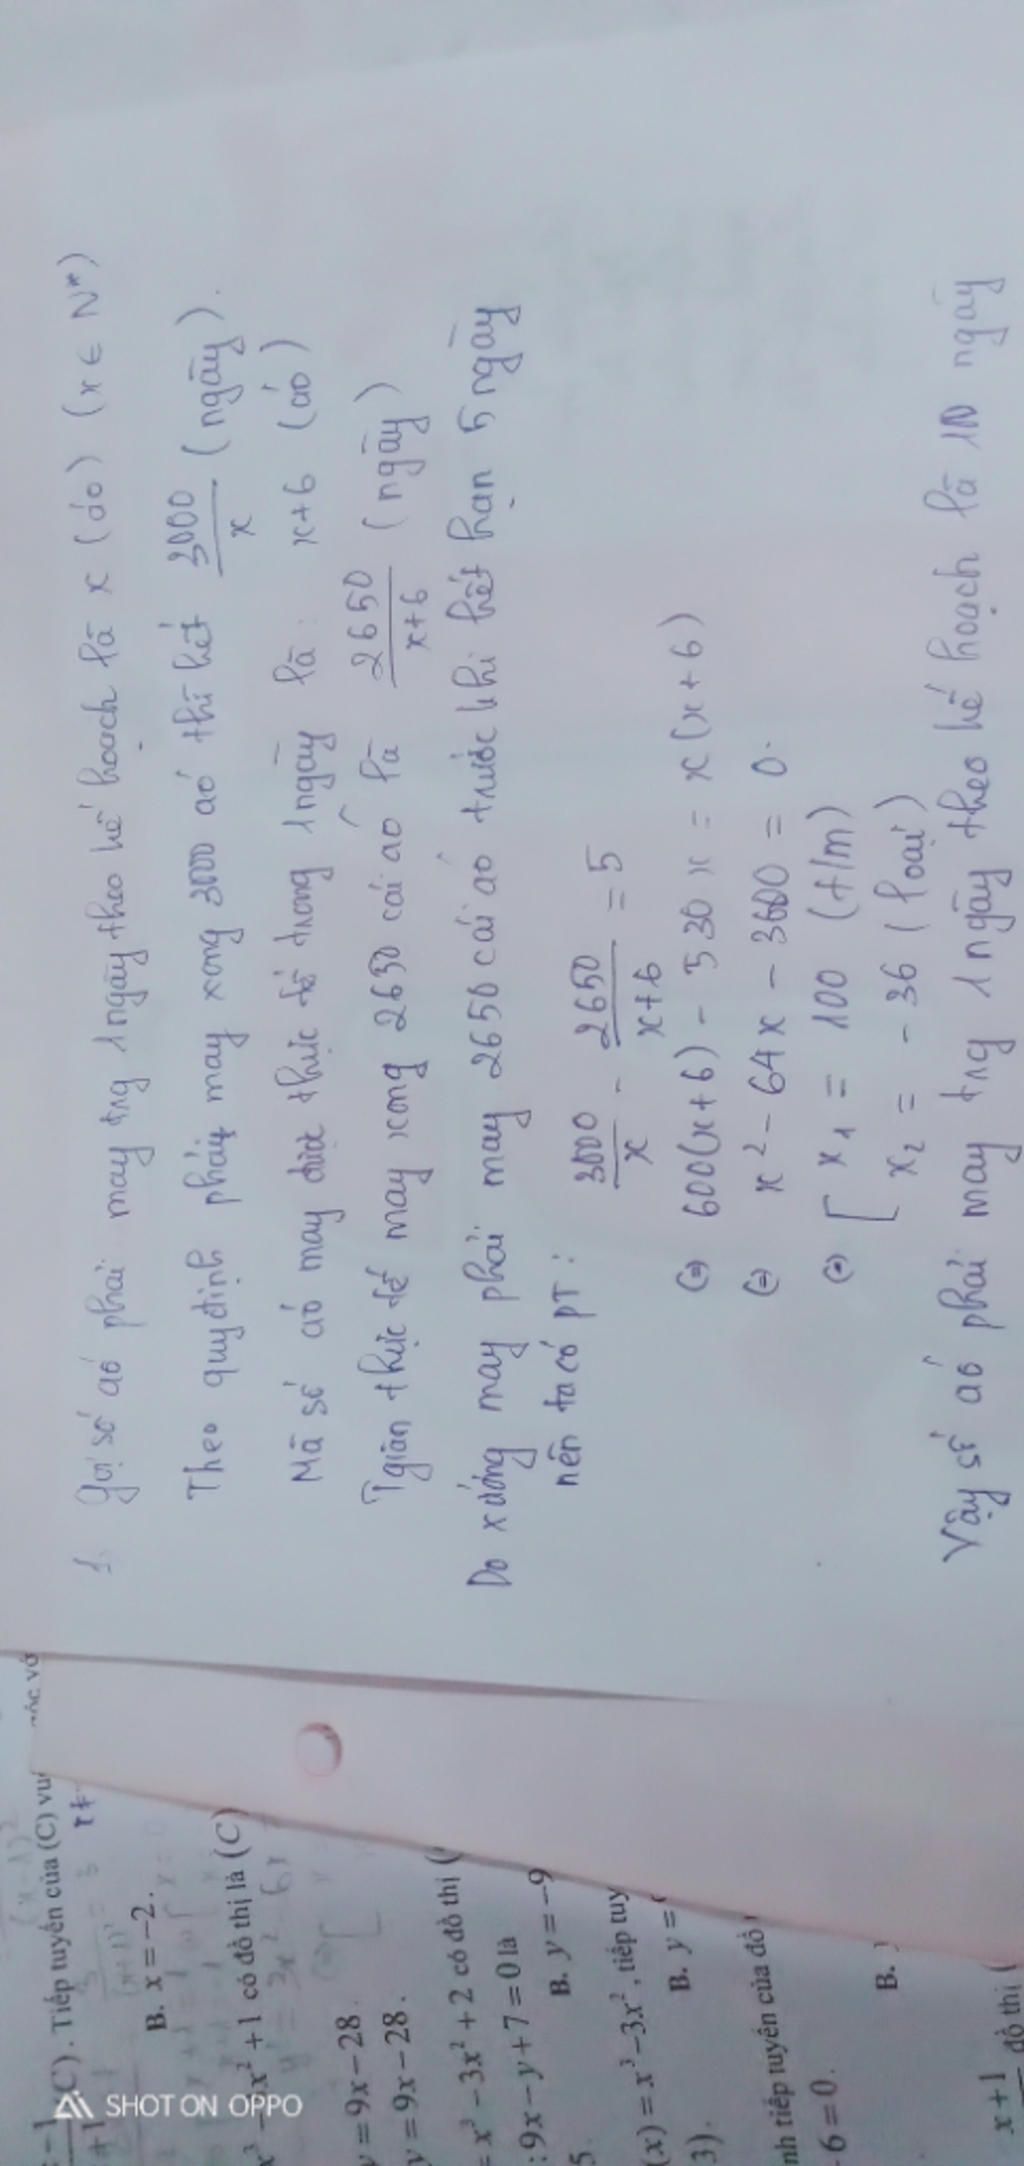 1. Gọi số áo phải may trg 1 ngày theo kế hoạch là x (áo) (x ∈ N*)
Theo quy định phải may xong 3000 áo thì hết 3000/x (ngày).
Mà số áo may được thực tế trong 1 ngày là: x+6 (áo)
Tgian thực tế may xong 2650 cái áo là 2650/x+6 (ngày)
Do xưởng may phải may 2650 cái áo trước khi hết hạn 5 ngày
nên ta có PT: 3000/x - 2650/x+6 = 5
(=) 600(x+6) - 530x = x(x+6)
(=) x² - 64x - 3600 = 0.
(=) [ x₁ = 100 (t/m)
x₂ = -36 (loại)
Vậy số áo phải may trg 1 ngày theo kế hoạch là 100 ngày
C). Tiếp tuyến của (C) vu
B. x = -2.
+ 1 có đồ thị là (C)
y = 9x - 28.
y = 9x - 28.
= x³ - 3x² + 2 có đồ thị (
: 9x - y + 7 = 0 là
5
B. y = -9
(x) = x³ - 3x², tiếp tuy
3).
B. y =
nh tiếp tuyến của đồ
6 = 0.
B.
x + 1
đồ thị (
SHOT ON OPPO